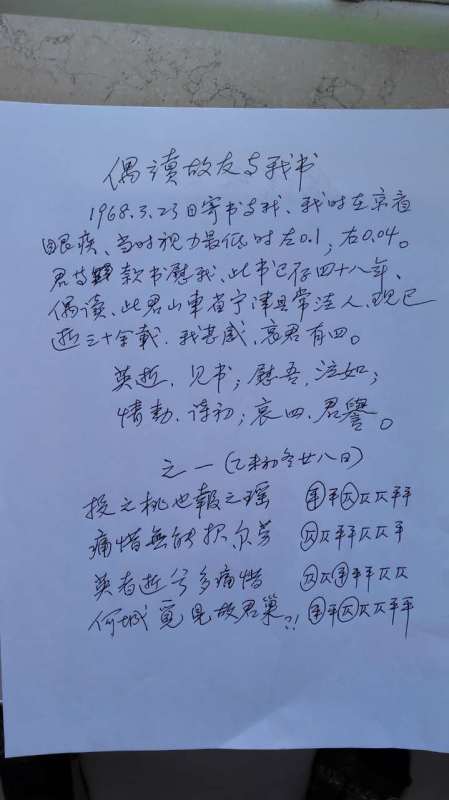 偶读故友与我书
1968.3.23日寄书与我、我时在京看
眼疾、当时视力最低时左0.1，右0.04。
君与款书慰我、此书已存四十八年、
偶读、此君山东省宁津县常洼人、现已
逝三十余载、我甚感、哀君有四。
英逝、见书；慰吾、泣如；
情勤、诗初；哀四、君誉。
之一（乙未初冬廿八日）
投之桃也报之瑶 平平仄仄仄平平
痛惜无能报尔劳 仄仄平平仄仄平
英者逝兮多痛惜 仄仄平平平仄仄
何城觅见故君巢?! 平平仄仄仄平平